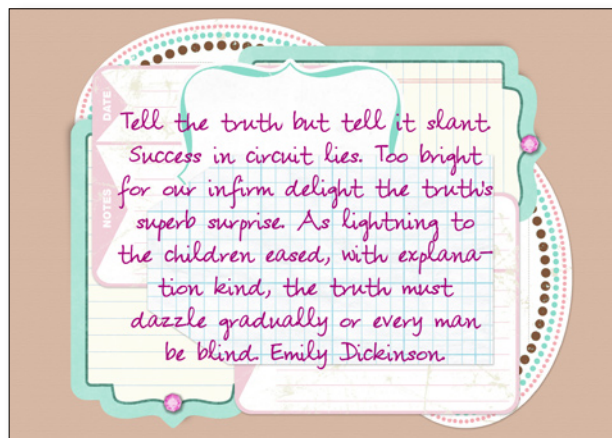 DATE
NOTES
Tell the truth but tell it slant.
Success in circuit lies. Too bright
for our infirm delight the truth's
superb surprise. As lightning to
the children eased, with explana-
tion kind, the truth must
dazzle gradually or every man
be blind. Emily Dickinson.